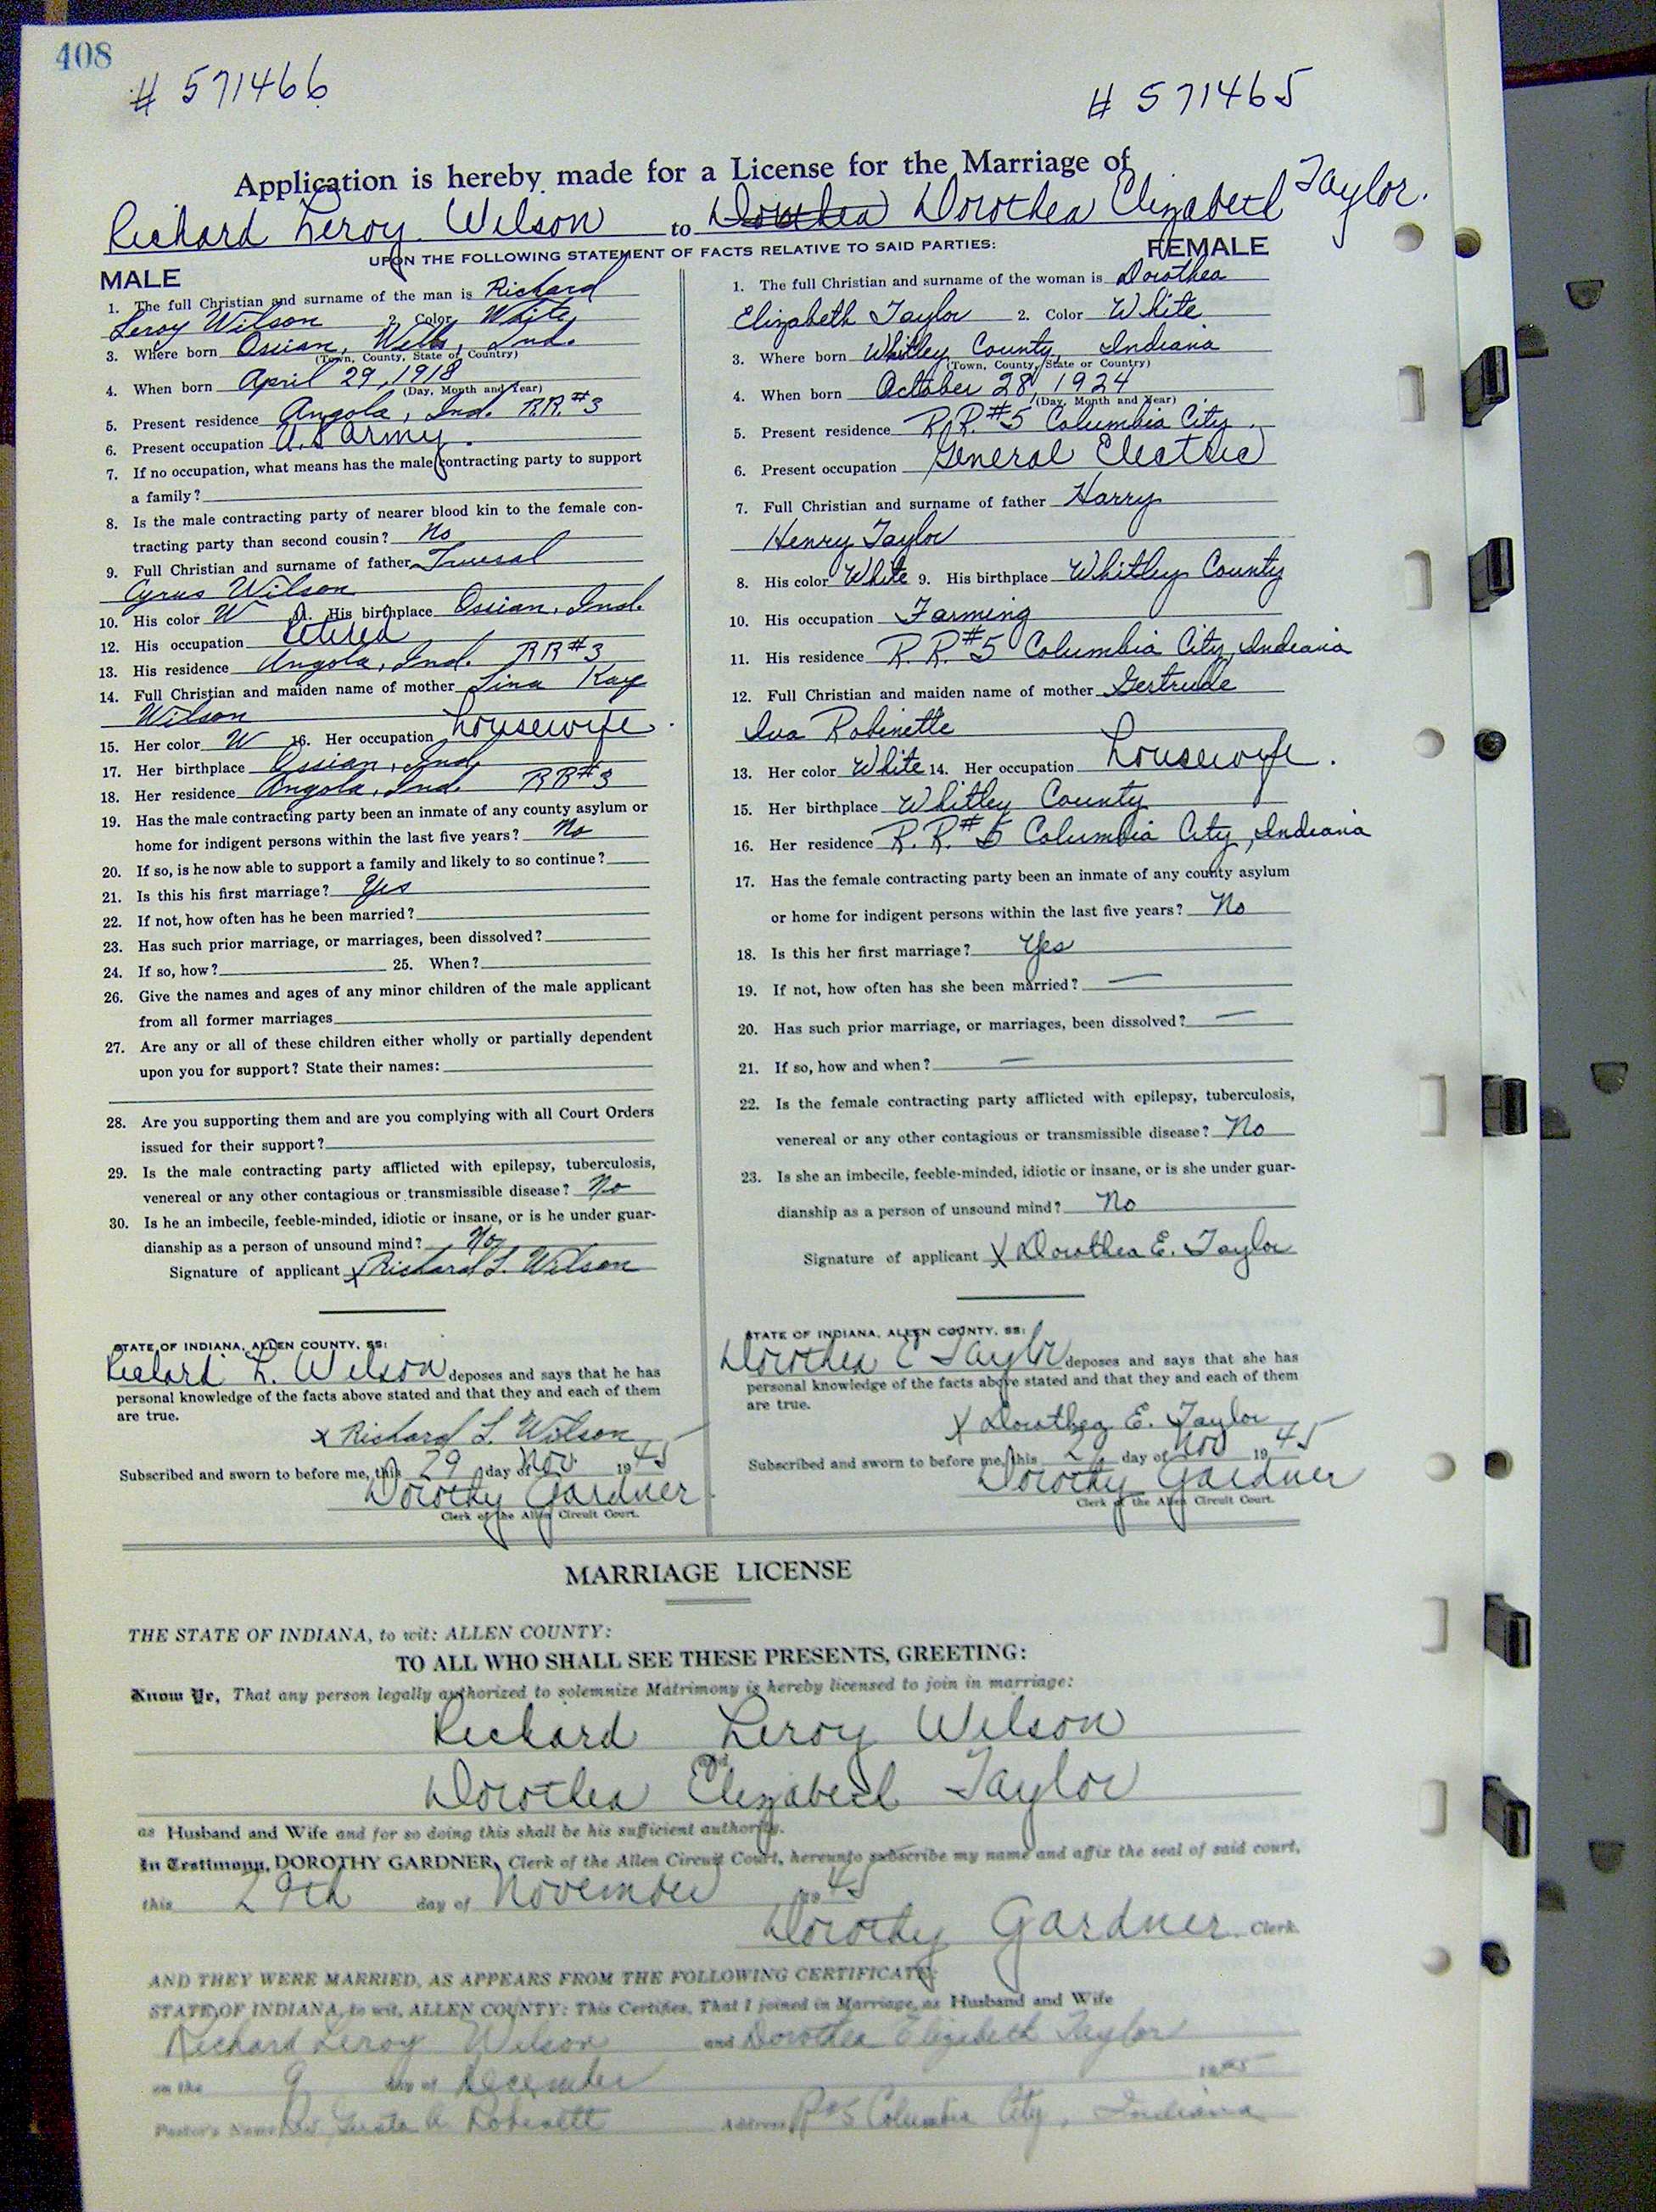 408
# 571466
# 571465
Application is hereby made for a License for the Marriage of
Richard Leroy Wilson to Dorothea Dorothea Elizabeth Taylor.
UPON THE FOLLOWING STATEMENT OF FACTS RELATIVE TO SAID PARTIES:
MALE
1. The full Christian and surname of the man is Richard
Leroy Wilson 2. Color White
3. Where born Ossian, Wells, Ind.
(Town, County, State or Country)
4. When born April 29, 1918
(Day, Month and Year)
5. Present residence Angola, Ind. R.R. #3
6. Present occupation U.S army.
7. If no occupation, what means has the male contracting party to support
a family?
8. Is the male contracting party of nearer blood kin to the female con-
tracting party than second cousin? No
9. Full Christian and surname of father
Cyrus Wilson
10. His color W 11. His birthplace Ossian, Ind.
12. His occupation retired
13. His residence Angola, Ind. RR #3
14. Full Christian and maiden name of mother Lina Kay
Wilson
15. Her color W 16. Her occupation housewife.
17. Her birthplace Ossian, Ind.
18. Her residence Angola, Ind. RR #3
19. Has the male contracting party been an inmate of any county asylum or
home for indigent persons within the last five years? No
20. If so, is he now able to support a family and likely to so continue?
21. Is this his first marriage? Yes
22. If not, how often has he been married?
23. Has such prior marriage, or marriages, been dissolved?
24. If so, how? 25. When?
26. Give the names and ages of any minor children of the male applicant
from all former marriages
27. Are any or all of these children either wholly or partially dependent
upon you for support? State their names:
28. Are you supporting them and are you complying with all Court Orders
issued for their support?
29. Is the male contracting party afflicted with epilepsy, tuberculosis,
venereal or any other contagious or transmissible disease? No
30. Is he an imbecile, feeble-minded, idiotic or insane, or is he under guar-
dianship as a person of unsound mind? No
Signature of applicant x Richard L. Wilson
STATE OF INDIANA, ALLEN COUNTY, SS:
Richard L. Wilson deposes and says that he has
personal knowledge of the facts above stated and that they and each of them
are true.
x Richard L. Wilson
Subscribed and sworn to before me, this 29 day of Nov. 1945
Dorothy Gardner
Clerk of the Allen Circuit Court.
FEMALE
1. The full Christian and surname of the woman is Dorothea
Elizabeth Taylor 2. Color White
3. Where born Whitley County, Indiana
(Town, County, State or Country)
4. When born October 28, 1924
(Day, Month and Year)
5. Present residence R.R. #5 Columbia City.
6. Present occupation General Electric
7. Full Christian and surname of father Harry
Henry Taylor
8. His color White 9. His birthplace Whitley County
10. His occupation Farming
11. His residence R.R. #5 Columbia City, Indiana
12. Full Christian and maiden name of mother Gertrude
Iva Robinette
13. Her color White 14. Her occupation housewife.
15. Her birthplace Whitley County
16. Her residence R.R. #5 Columbia City, Indiana
17. Has the female contracting party been an inmate of any county asylum
or home for indigent persons within the last five years? No
18. Is this her first marriage? Yes
19. If not, how often has she been married? —
20. Has such prior marriage, or marriages, been dissolved? —
21. If so, how and when? —
22. Is the female contracting party afflicted with epilepsy, tuberculosis,
venereal or any other contagious or transmissible disease? No
23. Is she an imbecile, feeble-minded, idiotic or insane, or is she under guar-
dianship as a person of unsound mind? No
Signature of applicant x Dorothea E. Taylor
STATE OF INDIANA, ALLEN COUNTY, SS:
Dorothea E Taylor deposes and says that she has
personal knowledge of the facts above stated and that they and each of them
are true.
x Dorothea E. Taylor
Subscribed and sworn to before me, this 29 day of Nov 1945
Dorothy Gardner
Clerk of the Allen Circuit Court.
MARRIAGE LICENSE
THE STATE OF INDIANA, to wit: ALLEN COUNTY:
TO ALL WHO SHALL SEE THESE PRESENTS, GREETING:
Know Ye, That any person legally authorized to solemnize Matrimony is hereby licensed to join in marriage:
Richard Leroy Wilson
and
Dorothea Elizabeth Taylor
as Husband and Wife and for so doing this shall be his sufficient authority.
In Testimony, DOROTHY GARDNER, Clerk of the Allen Circuit Court, hereunto subscribe my name and affix the seal of said court,
this 29th day of November 1945
Dorothy Gardner Clerk.
AND THEY WERE MARRIED, AS APPEARS FROM THE FOLLOWING CERTIFICATE:
STATE OF INDIANA, to wit, ALLEN COUNTY: This Certifies, That I joined in Marriage, as Husband and Wife
Richard Leroy Wilson and Dorothea Elizabeth Taylor
on the 9 day of December 1945
Pastor's Name Rev A Robinett Address R#5 Columbia City, Indiana